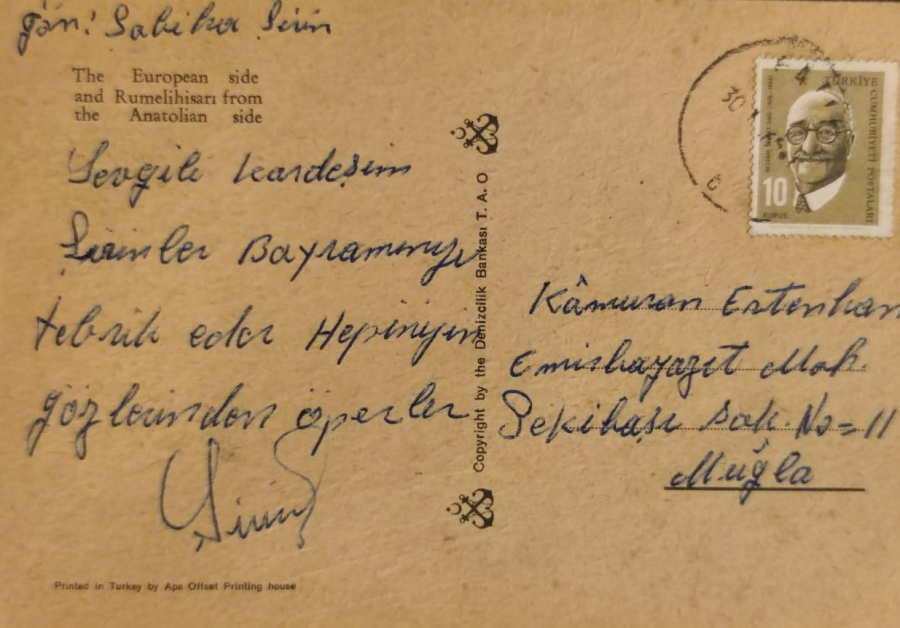 Gön: Sabiha Şirin
The European side
and Rumelihisarı from
the Anatolian side
Sevgili kardeşim
Şirinler Bayramınızı
tebrik eder Hepinizin
gözlerinden öperler
Şirin
Copyright by the Denizcilik Bankası T. A. O
TÜRKİYE CUMHURİYETİ POSTALARI
10
KURUŞ
30
Kâmuran Ertenhan
Emirbayazıt Mah.
Şekibaşı sok. No=11
Muğla
Printed in Turkey by Apa Offset Printing house